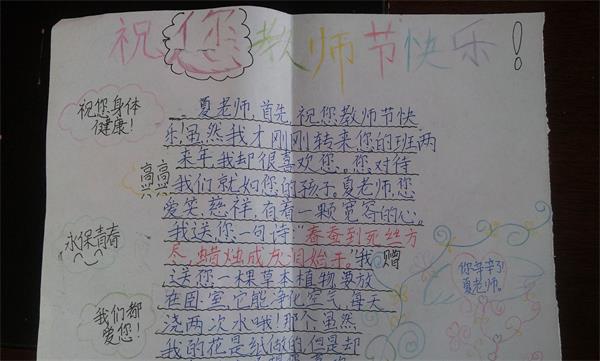 祝您教师节快乐!
祝您身体
健康!
高高
兴兴
永保青春
我们都
爱您!
夏老师,首先,祝您教师节快
乐!虽然我才刚刚转来您的班两
来年,我却很喜欢您。您对待
我们就如您的孩子,夏老师,您
爱笑,慈祥,有着一颗宽容的心。
我送您一句诗:"春蚕到死丝方
尽,蜡烛成灰泪始干。"我赠
送您一棵草本植物,要放
在卧室,它能净化空气,每天
浇两次水哦!那个,虽然
我的花是纸做的,但是却
你辛辛了!
夏老师。